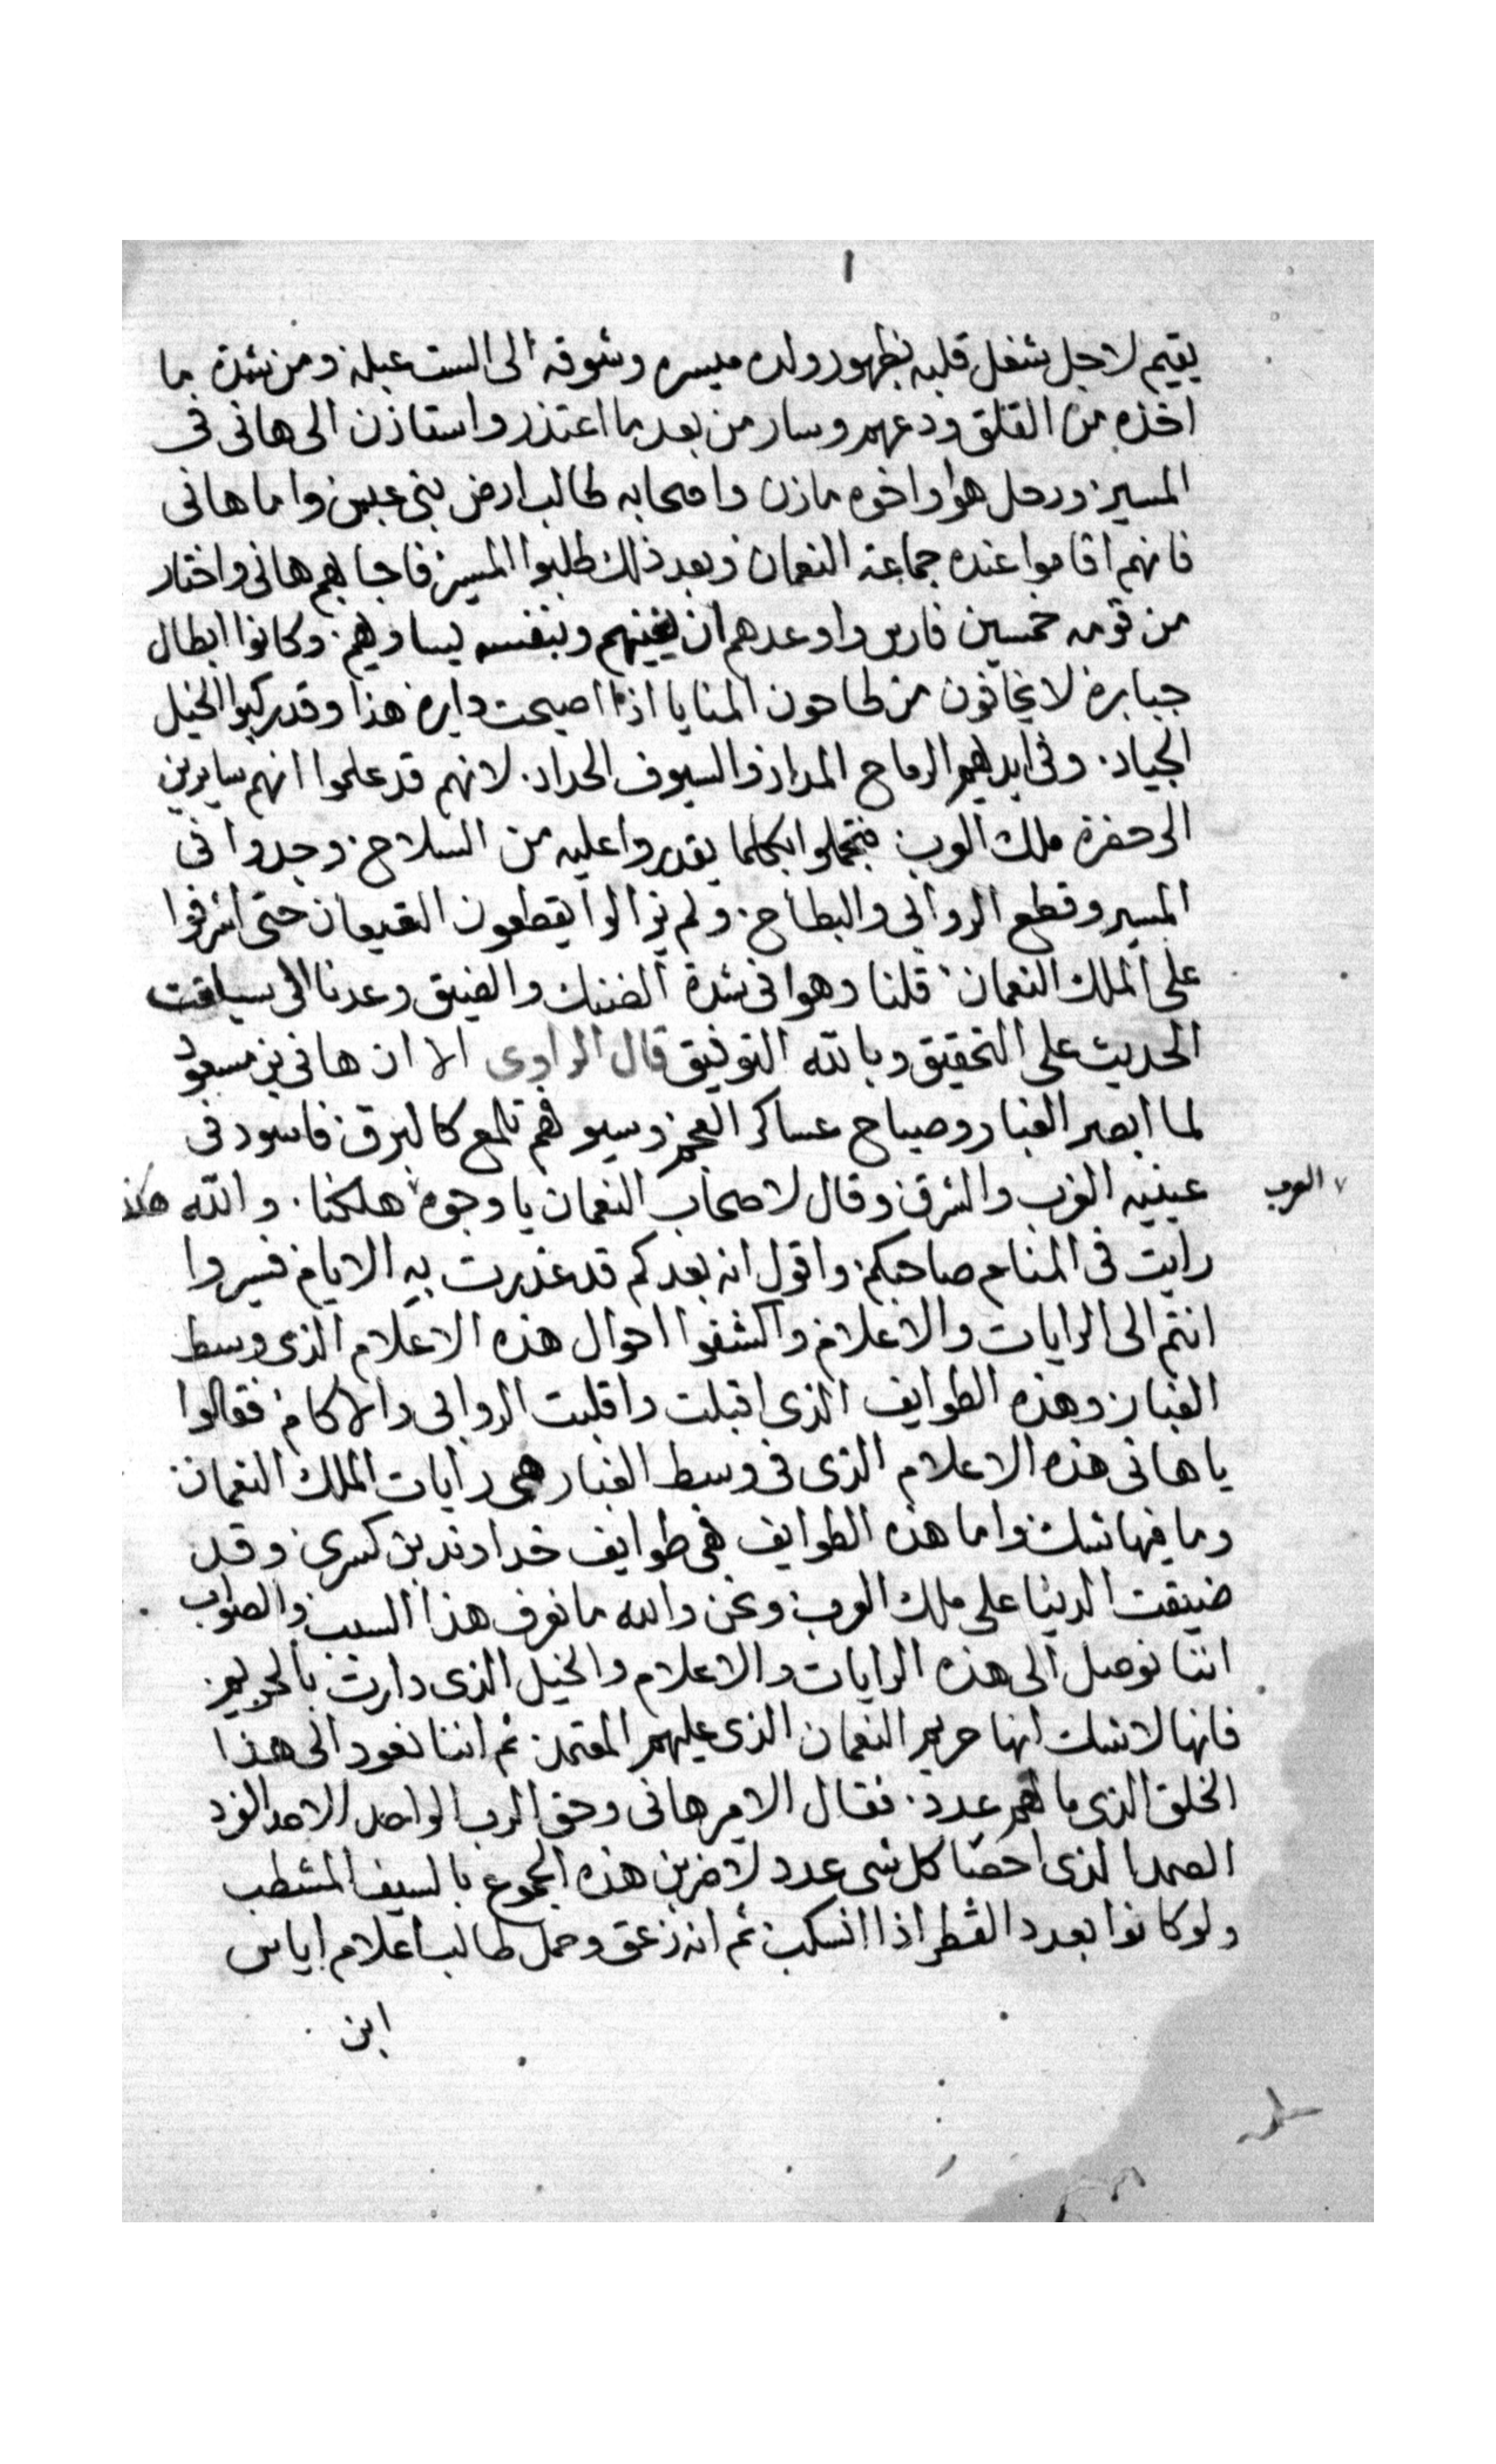 ١
يقيم لاجل شغل قلبه بظهور ولده ميسره وشوقه الى الست عبله ومن شدة ما
اخذه من القلق ودعهم وسار من بعد ما اعتذر واستاذن الى هانى فى
المسير ورحل هوا واخوه مازن واصحابه طالب ارض بنى عبس واما هانى
فانهم اقاموا عنده جماعة النعمان وبعد ذلك طلبوا المسير فاجابهم هانى واختار
من قومه خمسين فارس واوعدهم ان يغنيهم وبنفسه يساويهم وكانوا ابطال
جبابرة لا يخافون من طاحون المنايا اذا اصبحت دايره هذا وقد ركبوا الخيل
الجياد وفى ايديهم الرماح المداد والسيوف الحداد لانهم قد علموا انهم سايرين
الى حضرة ملك العرب فتجملوا بكلما يقدروا عليه من السلاح وجدوا فى
المسير وقطع الروابى والبطاح ولم يزالوا يقطعون القيعان حتى اشرفوا
على الملك النعمان قلنا وهوا فى شدة الضنك والضيق وعدنا الى سياقت
الحديث على التحقيق وبالله التوفيق قال الراوى الا ان هانى بن مسعود
لما ابصر الغبار وصياح عساكر العجم وسيوفهم تلمع كالبرق فاسود فى
عينيه الغرب والشرق وقال لاصحاب النعمان يا وجوه هلكنا والله هكذا
العرب
رايت فى المنام صاحبكم واقول انه بعدكم قد غدرت به الايام فسيروا
انتم الى الرايات والاعلام واكشفوا احوال هذه الاعلام الذى وسط
الغبار وهذه الطوايف الذى اقبلت واقلبت الروابى والاكام فقالوا
يا هانى هذه الاعلام الذى فى وسط الغبار هى رايات الملك النعمان
وما فيها شك واما هذه الطوايف فهى طوايف خداوند بن كسرى وقد
ضيقت الدينا على ملك العرب ونحن والله ما نعرف هذا السبب والصواب
اننا نوصل الى هذه الرايات والاعلام والخيل الذى دارت بالحريم
فانها لا شك انها حريم النعمان الذى عليهم المعتمد ثم اننا نعود الى هذا
الخلق الذى ما لهم عدد فقال الامير هانى وحق الرب الواحد الاحد الفرد
الصمد الذى احصا كل شى عدد لاضربن هذه الجموع بالسيف المشطب
ولو كانوا بعدد القطر اذا انسكب ثم انه زعق وحمل طالب اعلام اياس
ابن